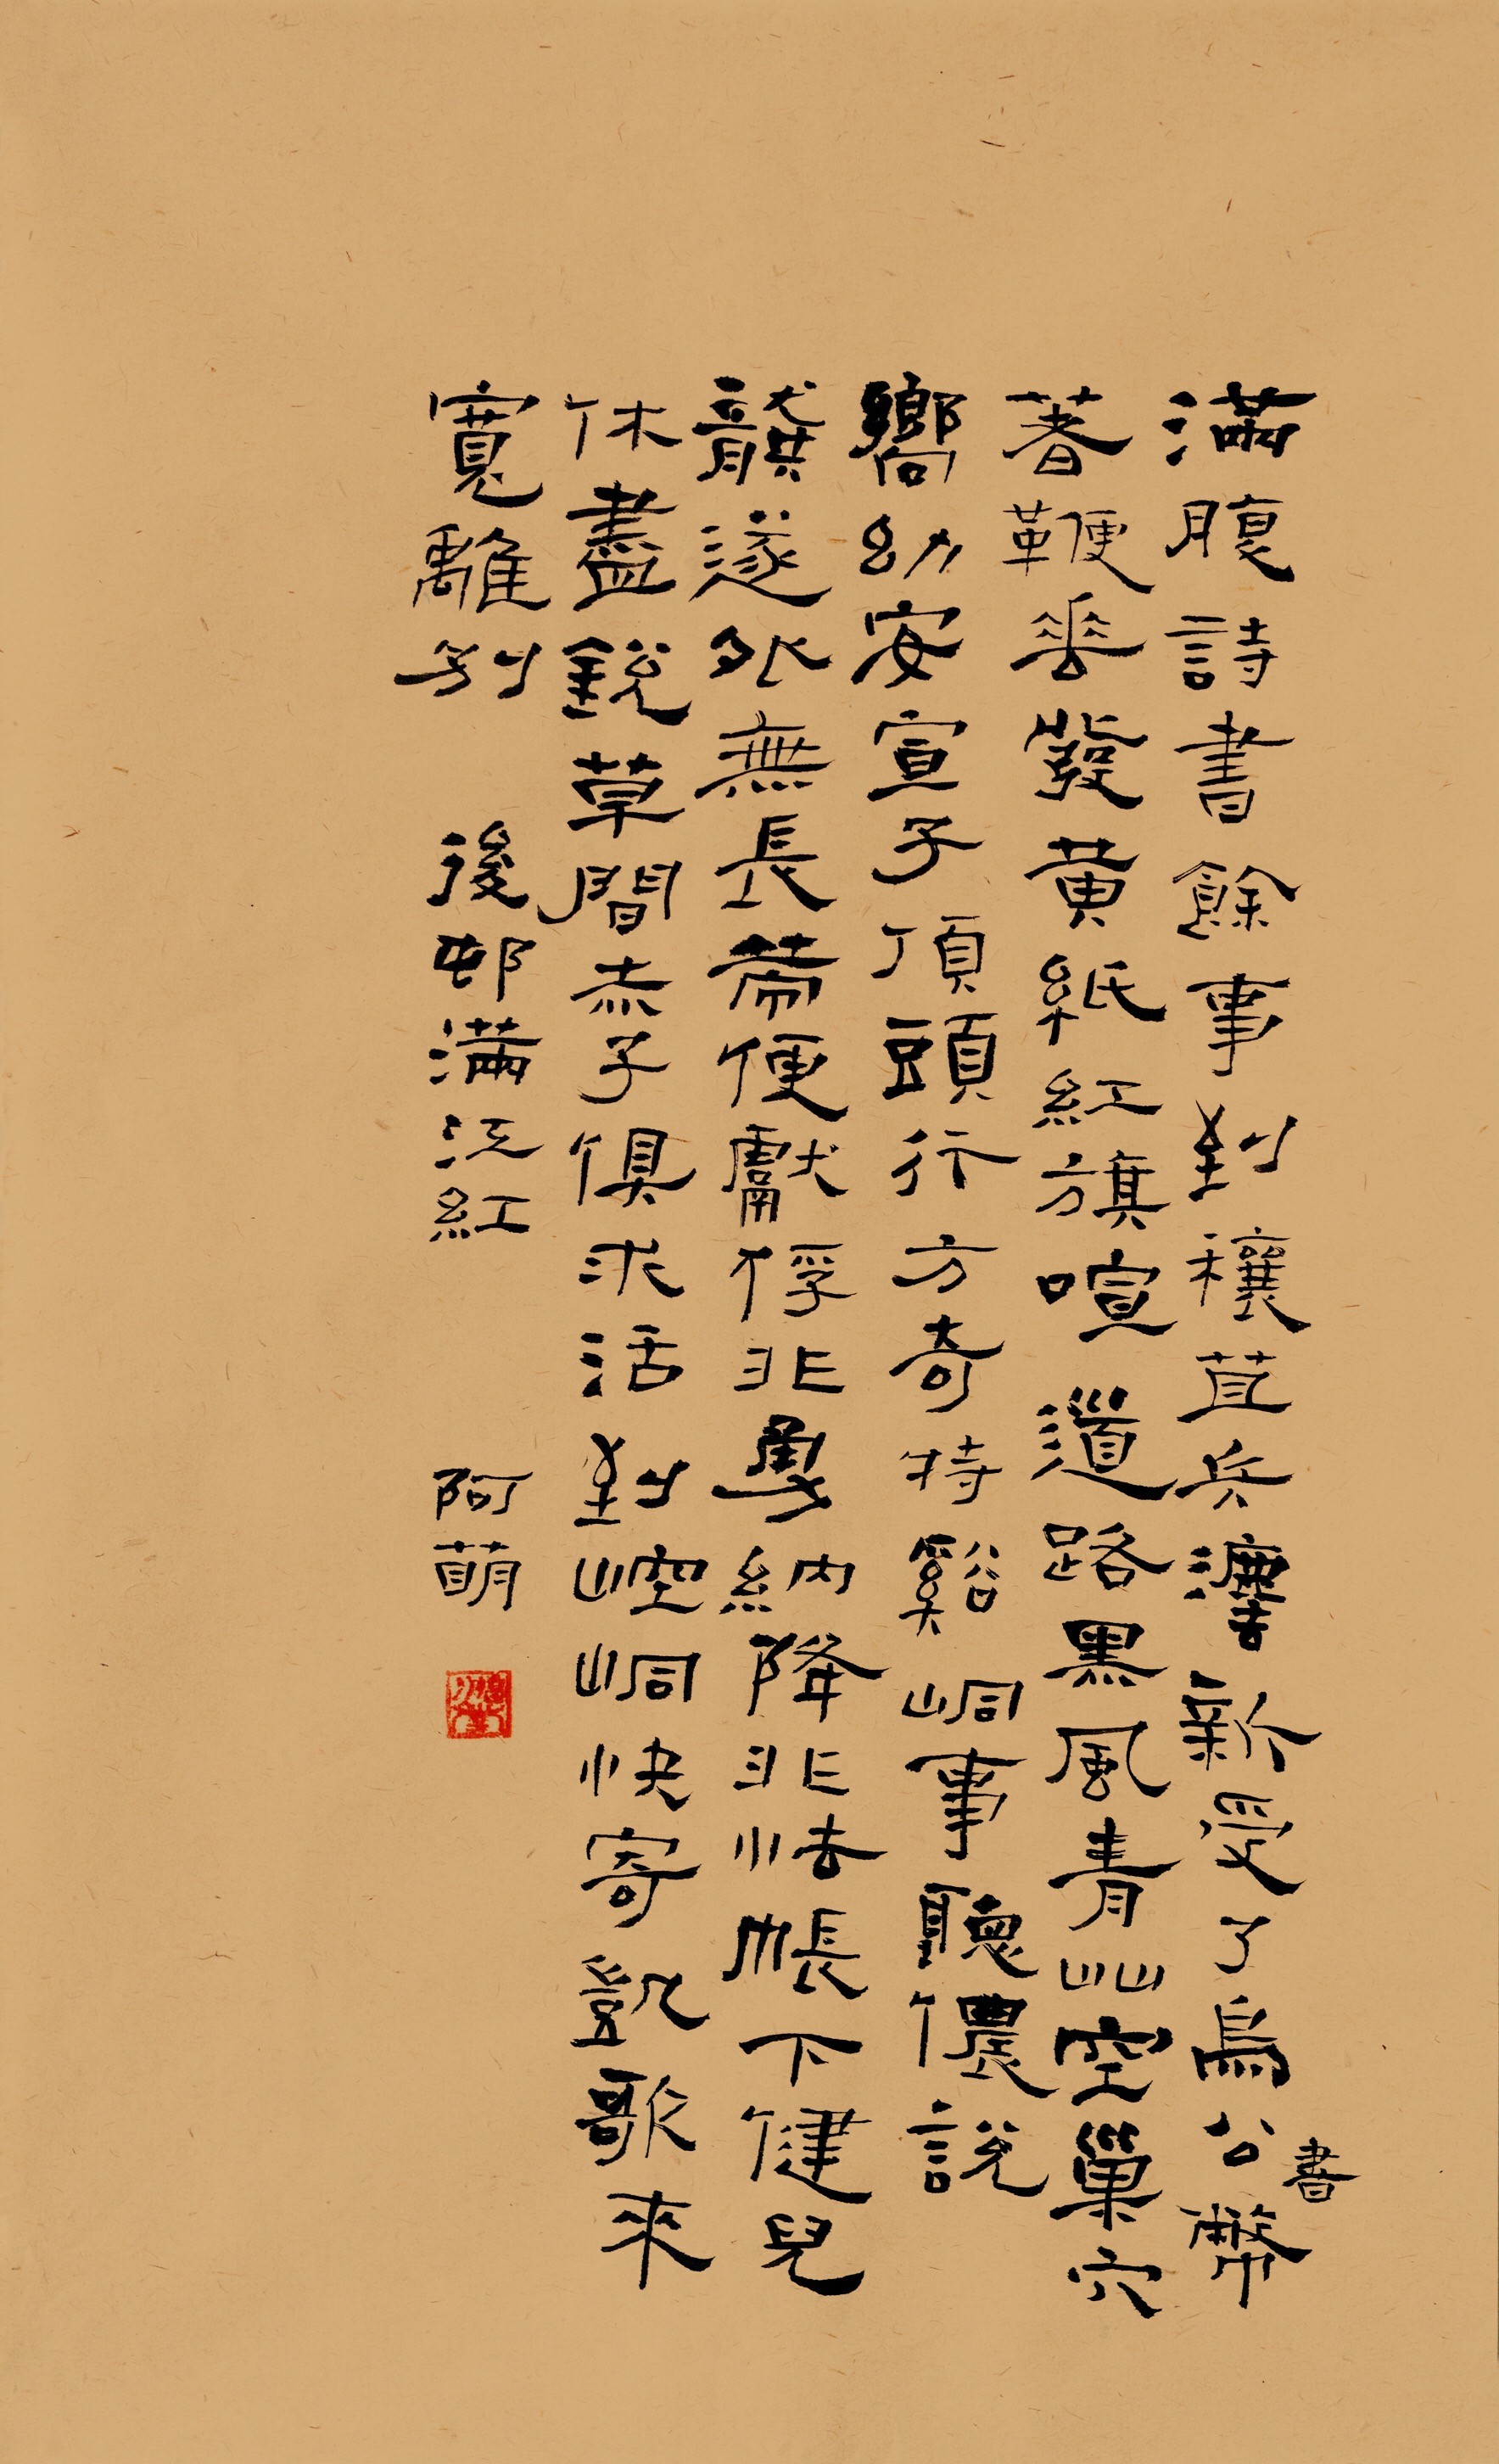 滿腹詩書餘事到穰苴兵灋新受了烏公書幣
著鞭垂發黃紙紅旗喧道路黑風青艸空巢穴
嚮幼安宣子頂頭行方奇特谿峒事聽儂說
龔遂外無長策便獻俘非勇納降非怯帳下健兒
休盡銳草間赤子俱求活到崆峒快寄凱歌來
寬離別 後邨滿江紅 阿萌